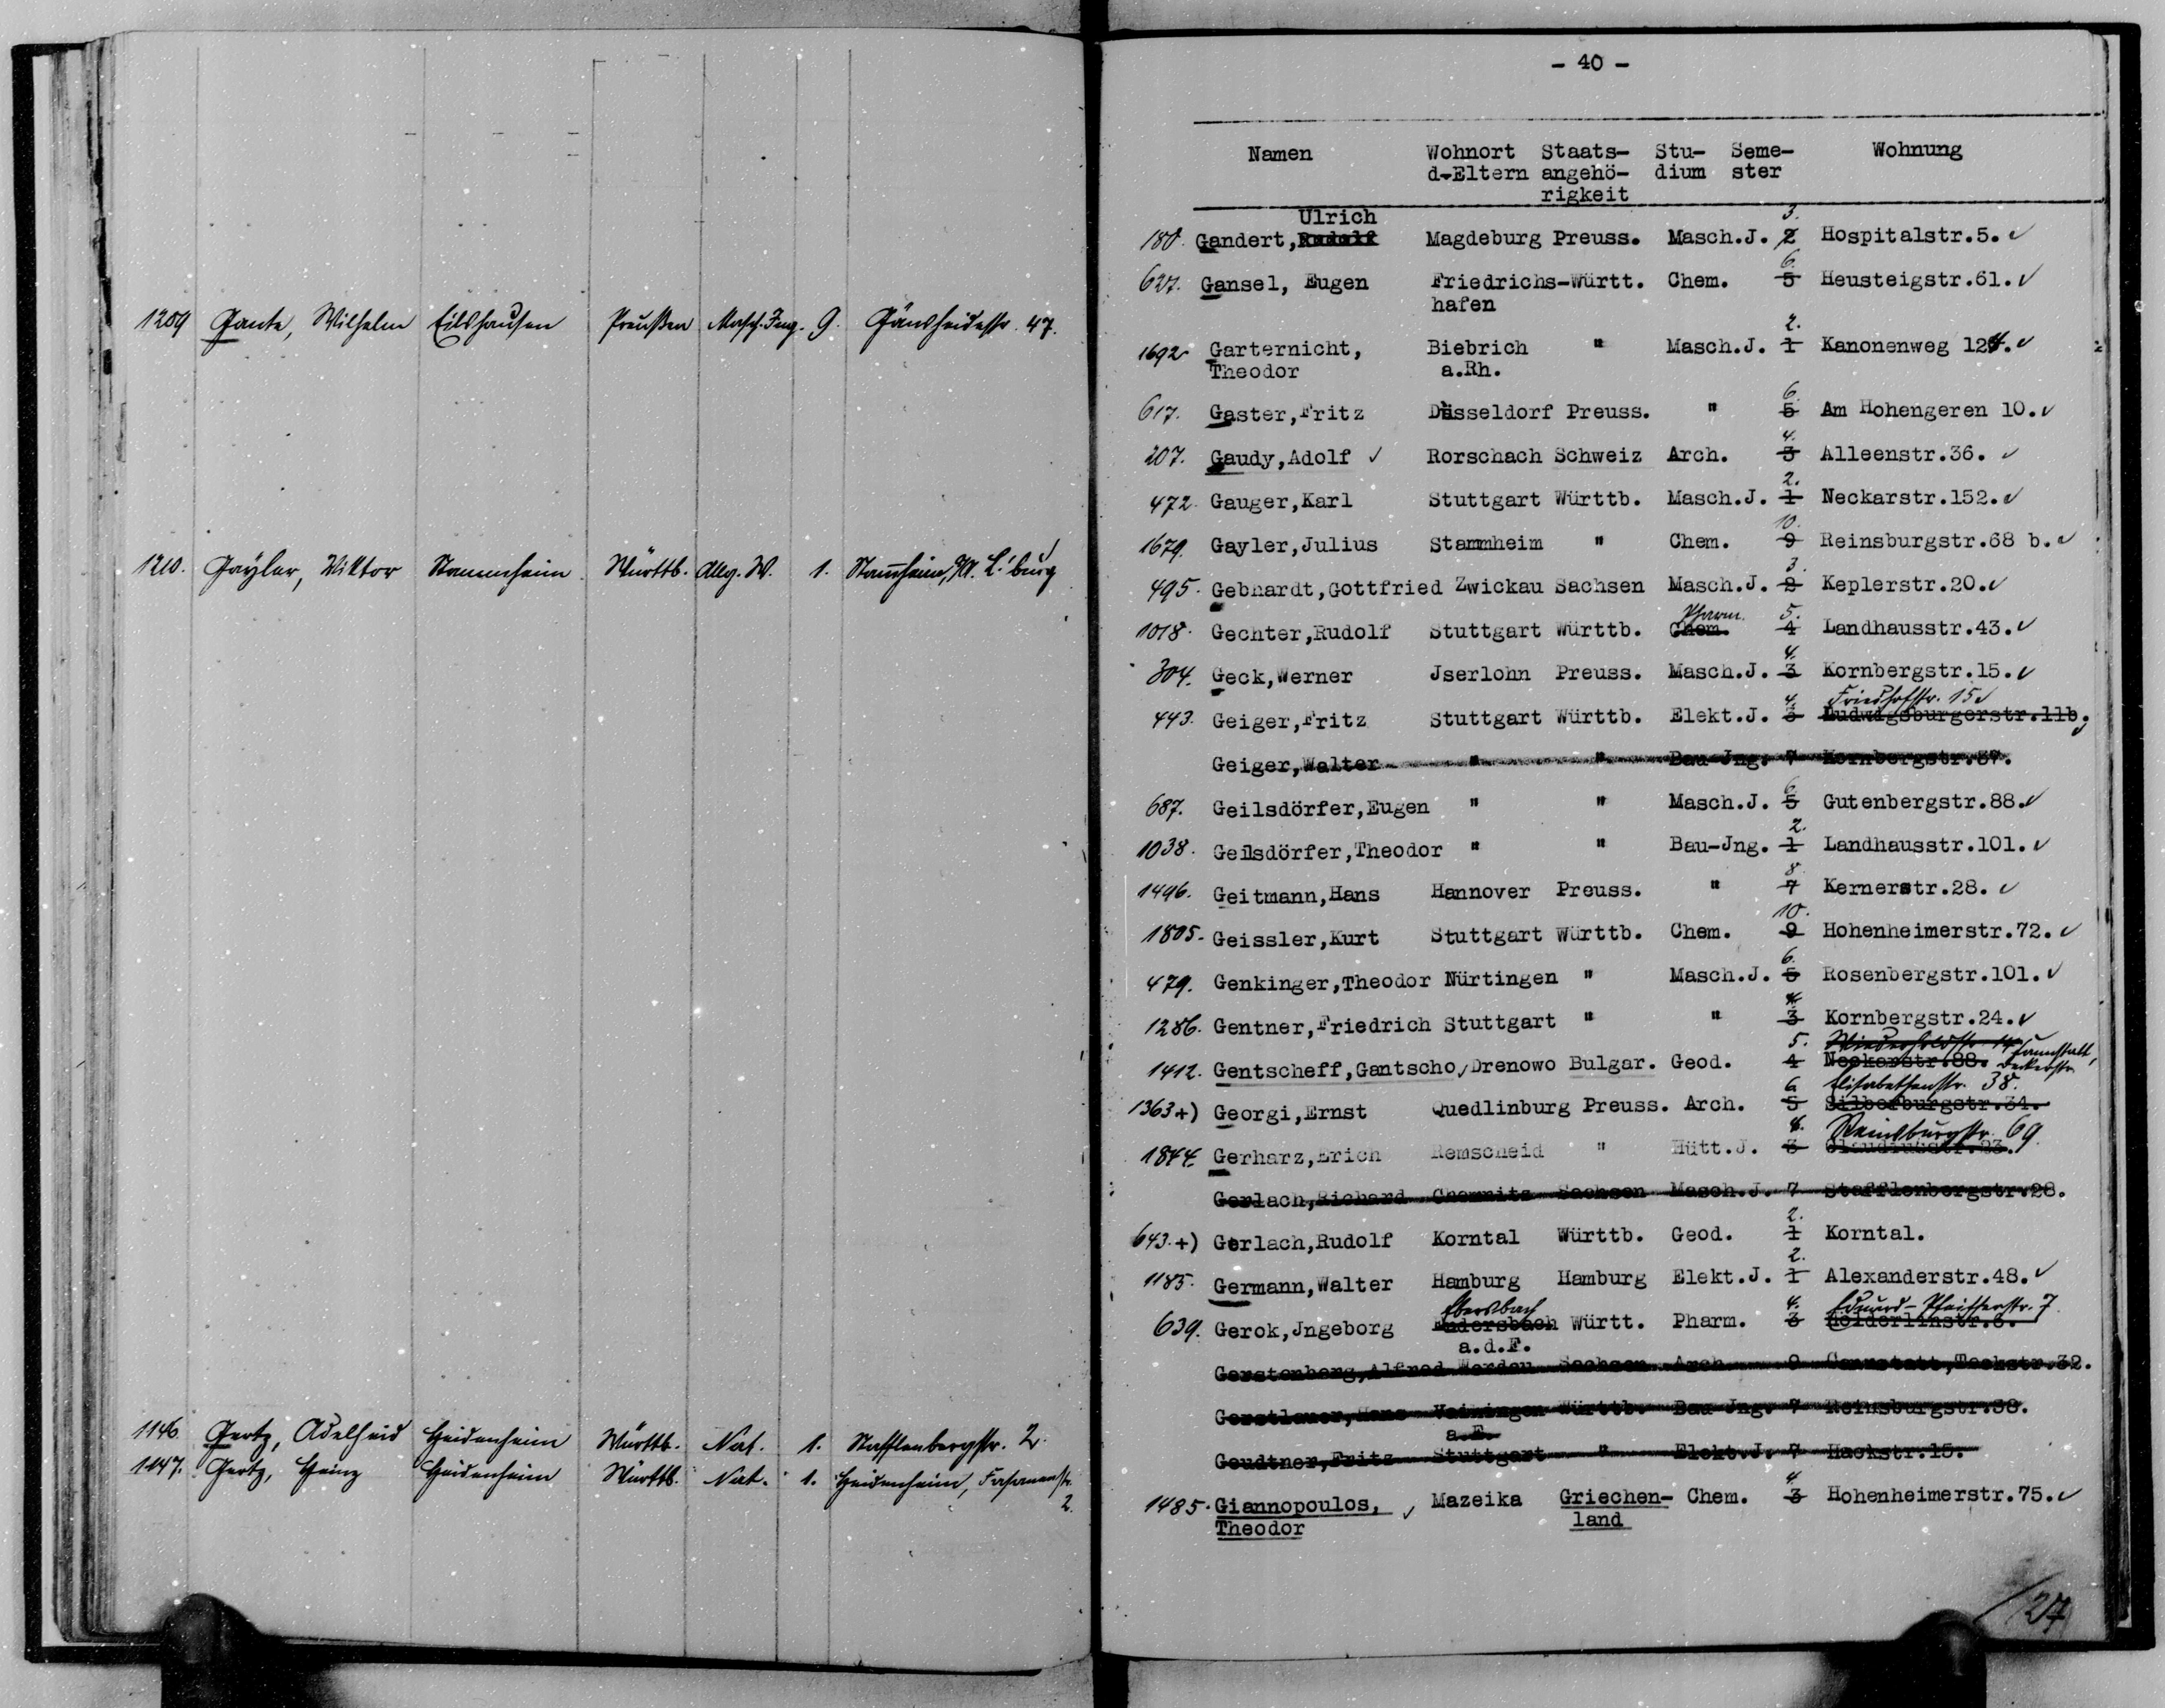 1209 Gante, Wilhelm Eilshausen Preußen Masch.Ing. 9. Gänsheidestr. 47.
1210. Gayler, Viktor Stammheim Württb. Allg. W. 1. Stammheim, OA. L'burg
1146. Gertz, Adelheid Heidenheim Württb. Nat. 1. Stafflenbergstr. 2.
1147. Gertz, Heinz Heidenheim Württb. Nat. 1. Heidenheim, Fasanenstr.
2.
- 40 -
Namen Wohnort Staats- Stu- Seme- Wohnung
d.Eltern angehö- dium ster
rigkeit
Ulrich 3.
180. Gandert, Rudolf Magdeburg Preuss. Masch.J. 2 Hospitalstr.5. ✓
6.
627. Gansel, Eugen Friedrichs-Württ. Chem. 5 Heusteigstr.61. ✓
hafen
2.
1692 Garternicht, Biebrich " Masch.J. 1 Kanonenweg 124. ✓
Theodor a.Rh.
6.
617. Gaster,Fritz Düsseldorf Preuss. " 5 Am Hohengeren 10. ✓
4.
207. Gaudy,Adolf ✓ Rorschach Schweiz Arch. 3 Alleenstr.36. ✓
2.
472. Gauger,Karl Stuttgart Württb. Masch.J. 1 Neckarstr.152. ✓
10.
1679. Gayler,Julius Stammheim " Chem. 9 Reinsburgstr.68 b. ✓
3.
495. Gebhardt,Gottfried Zwickau Sachsen Masch.J. 2 Keplerstr.20. ✓
Pharm. 5.
1018. Gechter,Rudolf Stuttgart Württb. Chem. 4 Landhausstr.43. ✓
4.
304. Geck,Werner Jserlohn Preuss. Masch.J. 3 Kornbergstr.15. ✓
4. Friedhofstr. 15 ✓
443. Geiger,Fritz Stuttgart Württb. Elekt.J. 3 Ludwigsburgerstr.11b.
Geiger,Walter " " Bau-Jng. 7 Kornbergstr.37.
6.
687. Geilsdörfer,Eugen " " Masch.J. 5 Gutenbergstr.88. ✓
2.
1038. Geilsdörfer,Theodor " " Bau-Jng. 1 Landhausstr.101. ✓
8
1496. Geitmann,Hans Hannover Preuss. " 7 Kernerstr.28. ✓
10.
1805. Geissler,Kurt Stuttgart Württb. Chem. 9 Hohenheimerstr.72. ✓
6.
479. Genkinger,Theodor Nürtingen " Masch.J. 5 Rosenbergstr.101. ✓
4.
1286. Gentner,Friedrich Stuttgart " " 3 Kornbergstr.24. ✓
5. Wiederholdstr. Cannstatt,
1412. Gentscheff,Gantscho, Drenowo Bulgar. Geod. 4 Neckarstr.88.
6 Elisabethenstr. 38.
1363 +) Georgi,Ernst Quedlinburg Preuss. Arch. 5 Silberburgstr.34.
4. Reinsburgstr. 69
1844. Gerharz,Erich Remscheid " Hütt.J. 3 Claudiusstr.23.
Gerlach,Richard Chemnitz Sachsen Masch.J. 7 Stafflenbergstr.28.
2.
643. +) Gerlach,Rudolf Korntal Württb. Geod. 1 Korntal.
2.
1185. Germann,Walter Hamburg Hamburg Elekt.J. 1 Alexanderstr.48. ✓
Ebersbach 4. Eduard-Pfeifferstr. 7
639. Gerok,Jngeborg Endersbach Württ. Pharm. 3 Hölderlinstr.6.
a.d.F.
Gerstenberg,Alfred Werdau Sachsen Arch. 9 Cannstatt,Teckstr.32.
Gerstlauer,Hans Vaihingen Württb. Bau Jng. 7 Reinsburgstr.38.
a.E.
Geudtner,Fritz Stuttgart " Elekt.J. 7 Hackstr.15.
4.
1485. Giannopoulos, ✓ Mazeika Griechen- Chem. 3 Hohenheimerstr.75. ✓
Theodor land
/27